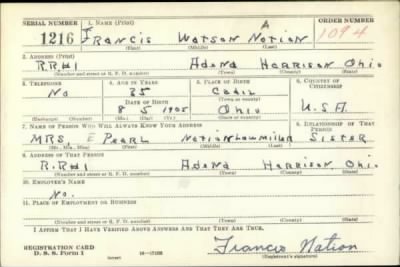 SERIAL NUMBER 1. NAME (Print) ORDER NUMBER
1216 Francis Watson Nation A 1094
(First) (Middle) (Last)
2. ADDRESS (Print)
R.R#1 Adena Harrison Ohio
(Number and street or R. F. D. number) (Town) (County) (State)
3. TELEPHONE 4. AGE IN YEARS 5. PLACE OF BIRTH 6. COUNTRY OF CITIZENSHIP
No 35 Cadiz
(Town or county)
DATE OF BIRTH
8 5 1905 Ohio U.S.A.
(Exchange) (Number) (Mo.) (Day) (Yr.) (State or country)
7. NAME OF PERSON WHO WILL ALWAYS KNOW YOUR ADDRESS 8. RELATIONSHIP OF THAT PERSON
MRS. E Pearl Nation Sister
(Mr., Mrs., Miss) (First) (Middle) (Last)
9. ADDRESS OF THAT PERSON
R.R#1 Adena Harrison, Ohio
(Number and street or R. F. D. number) (Town) (County) (State)
10. EMPLOYER'S NAME
No.
11. PLACE OF EMPLOYMENT OR BUSINESS
(Number and street or R. F. D. number) (Town) (County) (State)
I AFFIRM THAT I HAVE VERIFIED ABOVE ANSWERS AND THAT THEY ARE TRUE.
REGISTRATION CARD
D. S. S. Form 1
Francis Nation
(Registrant's signature)